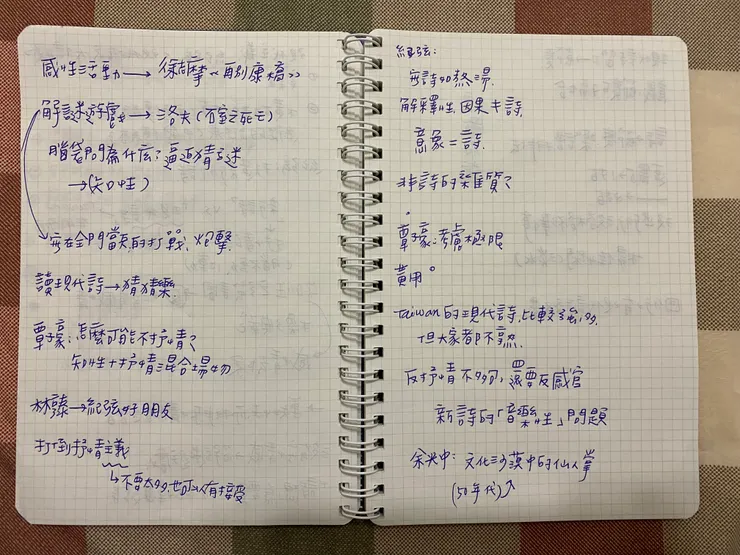 感性活動 → 徐志摩《再別康橋》
解謎遊戲 → 洛夫(石室之死亡)
腦袋問為什么？逼迫猜謎
→(知性)
在金門當兵的打戰、炮擊
讀現代詩→猜猜樂
覃子豪:怎麼可能不抒情？
知性+抒情混合場物
林藜→紀弦好朋友
打倒抒情主義
↳不要太多,也可以有接受
紀弦:
詩的熬湯.
解釋性.因果≠詩.
意象=詩.
非詩的雜質?
覃子豪:考慮極限
黃用。
Taiwan的現代詩,比較強,
但大家都不熟.
反抒情不夠,還要反感官
新詩的「音樂性」問題
余光中: 文化沙漠中的仙人掌
(50年代)↗